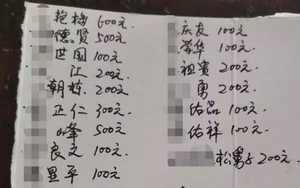 艳梅 600元.
德贤 500元.
世国 100元
江 200元
朝栋 200元.
正仁 300元
峰 500元
良文 100元.
显平 100元
庆友 100元
荣华 100元
祖贵 200元
勇 200元
佑品 100元.
佑祥 100元.
松舅子 200元.